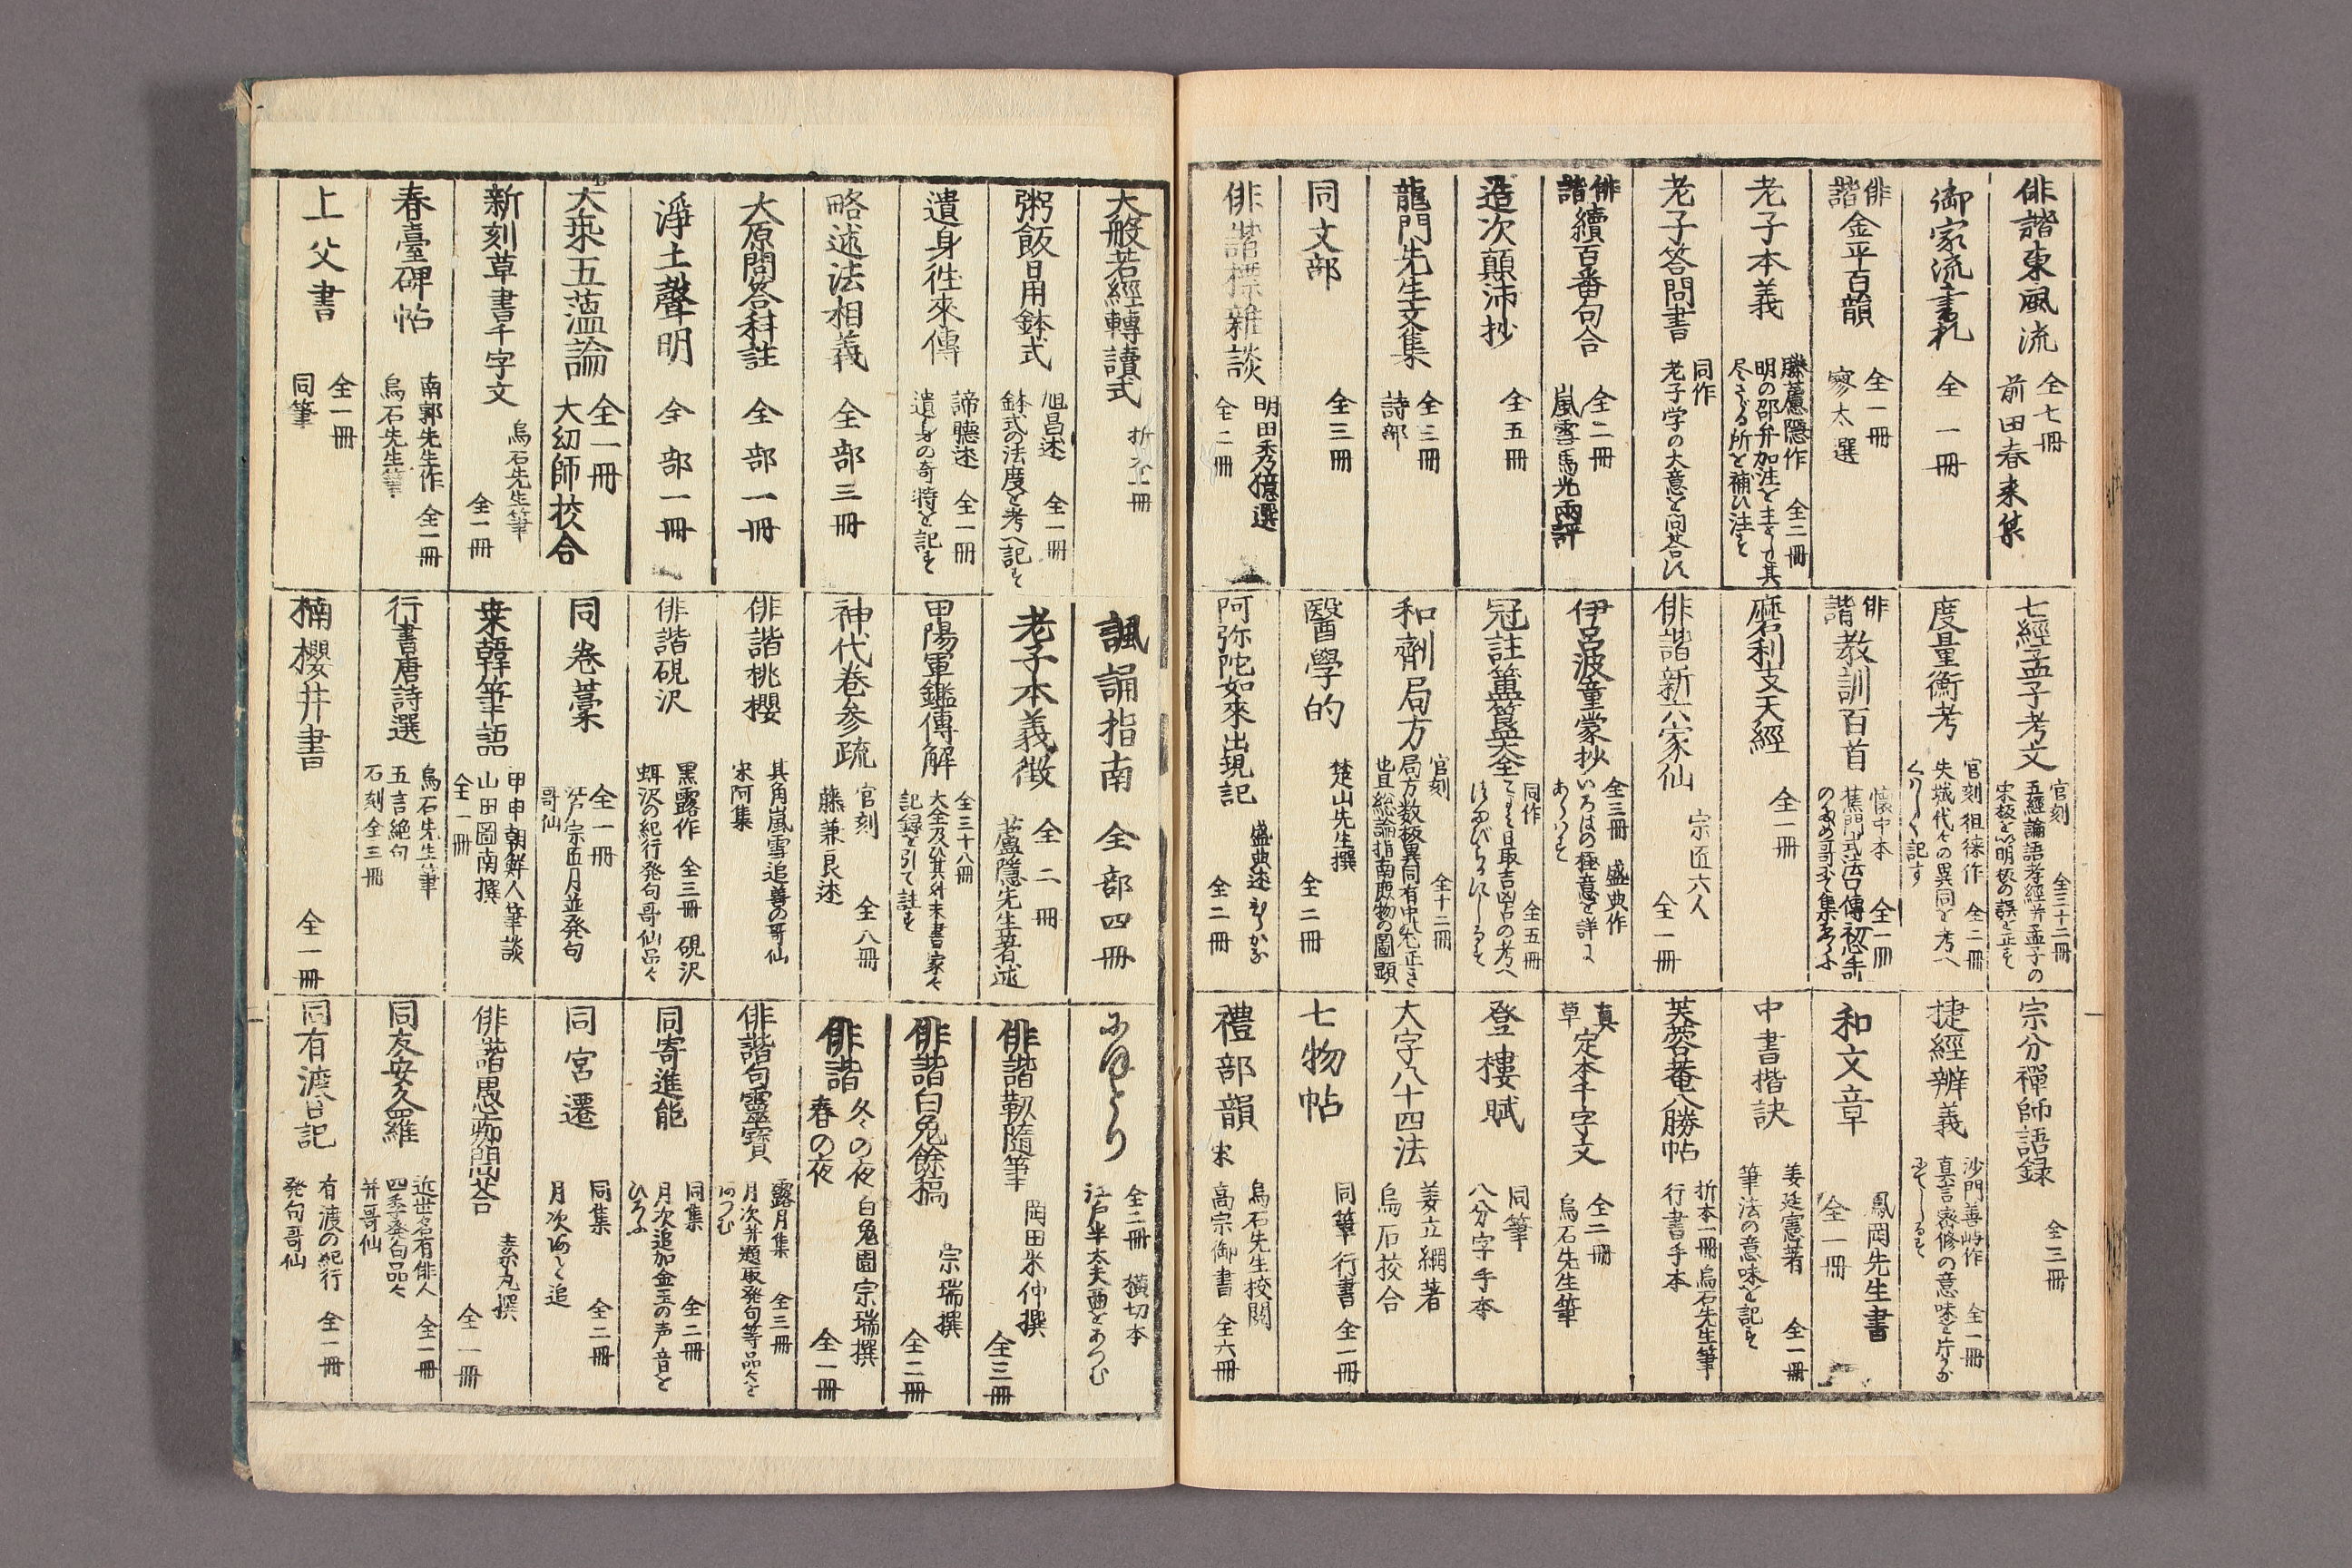 俳諧東風流 全七冊 前田春来集
御家流書札 全一冊
俳諧金平百韻 全一冊 寥太選
老子本義 藤蘆隠作 全二冊
老子答問書 同作 老子学の大意を問答に
俳諧續百番句合 全二冊 嵐雪馬光両評
造次顛沛抄 全五冊
龍門先生文集 全三冊 詩部
同文部 全三冊
俳諧標雑談 明田秀億選 全二冊
七經孟子考文 官刻 全三十二冊
五經論語孝經并孟子の
度量衡考 官刻 徂徠作 全二冊
俳諧教訓百首 懐中本 全一冊
磨利支天經 全一冊
俳諧新六家仙 宗匠六人 全一冊
伊呂波童蒙抄 全三冊 盛典作
いろはの極意を詳に
冠註簠簋大全 同作 全五冊
和劑局方 官刻 全十二冊
醫學的 楚山先生撰 全二冊
阿弥陀如來出現記 盛典述 全二冊
宗分禪師語録 全三冊
捷經辨義 沙門善 作 全一冊
和文章 鳳岡先生書 全一冊
中書楷訣 姜廷憲著 全一冊
筆法の意味を記す
芙蓉菴八勝帖 折本一冊 烏石先生筆
行書手本
真草定本千字文 全二冊 烏石先生筆
登樓賦 同筆 八分字手本
大字八十四法 姜立綱著 烏石校合
七物帖 同筆 行書 全一冊
禮部韻 宋高宗御書 烏石先生校閲 全六冊
大般若經轉讀式 折本一冊
粥飯日用鉢式 旭昌述 全一冊
鉢式の法度を考へ記す
遺身往來傳 諦聴述 全一冊
遺身の奇特を記す
略述法相義 全部三冊
大原問答科註 全部一冊
淨土聲明 全部一冊
大乗五薀論 全一冊 大幻師挍合
新刻草書千字文 烏石先生筆 全一冊
春臺碑帖 南郭先生作 全一冊
烏石先生筆
上父書 全一冊 同筆
諷誦指南 全部四冊
老子本義徴 全二冊 蘆隠先生著述
甲陽軍鑑傳解 全三十八冊
大全及ひ其外末書家々
記録を引て註す
神代巻参疏 官刻 全八冊
藤兼良述
俳諧桃櫻 其角嵐雪追善の哥仙
宋阿集
俳諧硯沢 黒露作 全三冊 硯沢
蛭沢の紀行発句哥仙品々
同巻藁 全一冊
江戸宗匠月並発句
哥仙
桒韓筆語 甲申朝鮮人筆談
山田圖南撰
全一冊
行書唐詩選 烏石先生筆
五言絶句
石刻全三冊
楠櫻井書 全一冊
にほとり 全二冊 横切本
江戸半太夫酒をあつむ
俳諧靱隨筆 岡田米仲撰 全三冊
俳諧白兔餘稿 宗瑞撰 全二冊
俳諧 冬の夜 春の夜 白兔園宗瑞撰 全一冊
俳諧句靈寶 露月集 全三冊
月次并題取発句等品々を
あつむ
同寄進能 同集 全二冊
月次追加金玉の声音を
ひろふ
同宮遷 同集 全二冊
俳諧愚痴問答 素丸撰 全一冊
同友安久羅 近世名有俳人 全一冊
四季発句品々
并哥仙
同有渡日記 有渡の紀行 全一冊
発句哥仙